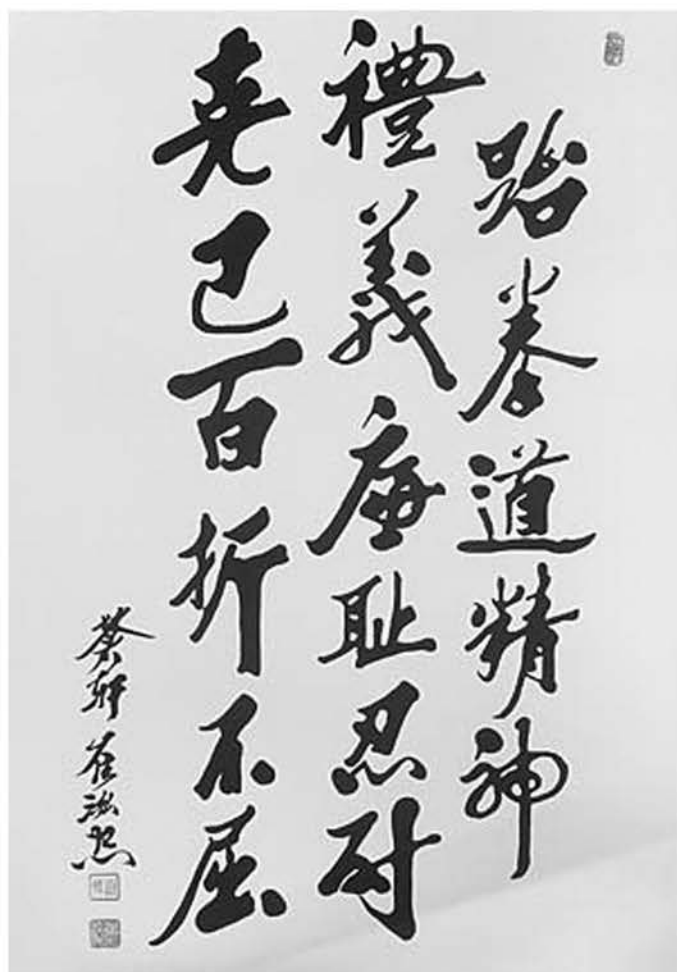 跆拳道精神
禮義廉耻忍耐
克己百折不屈
蒼軒 崔泓熙